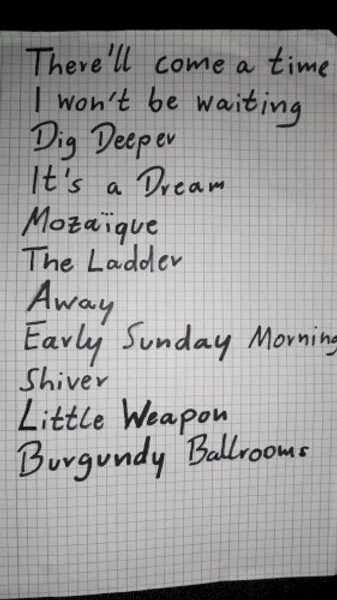 There'll come a time
I won't be waiting
Dig Deeper
It's a Dream
Mozaïque
The Ladder
Away
Early Sunday Morning
Shiver
Little Weapon
Burgundy Ballrooms